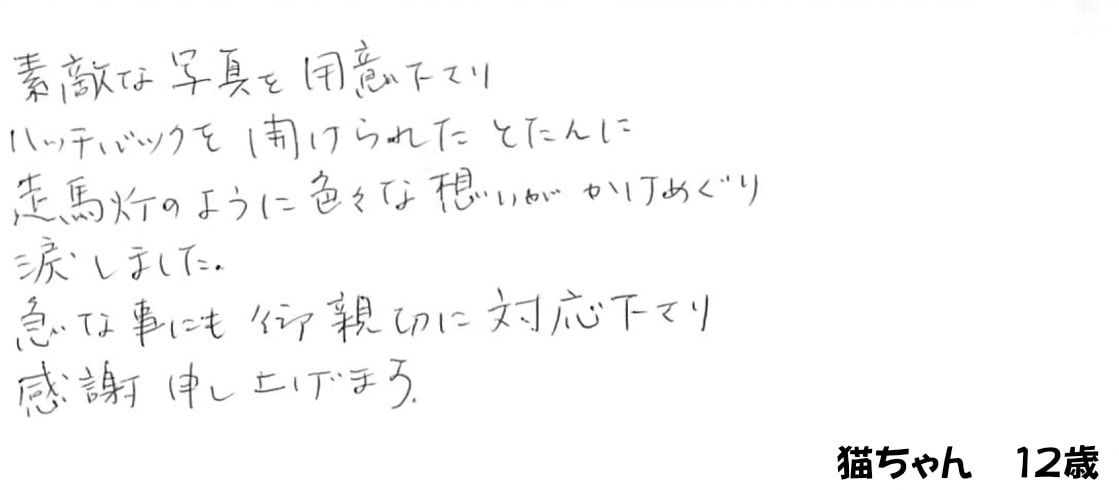 素敵な写真を用意下さり
ハッチバックを開けられたとたんに
走馬灯のように色々な想いがかけめぐり
涙しました。
急な事にも御親切に対応下さり
感謝申し上げます。
猫ちゃん 12歳